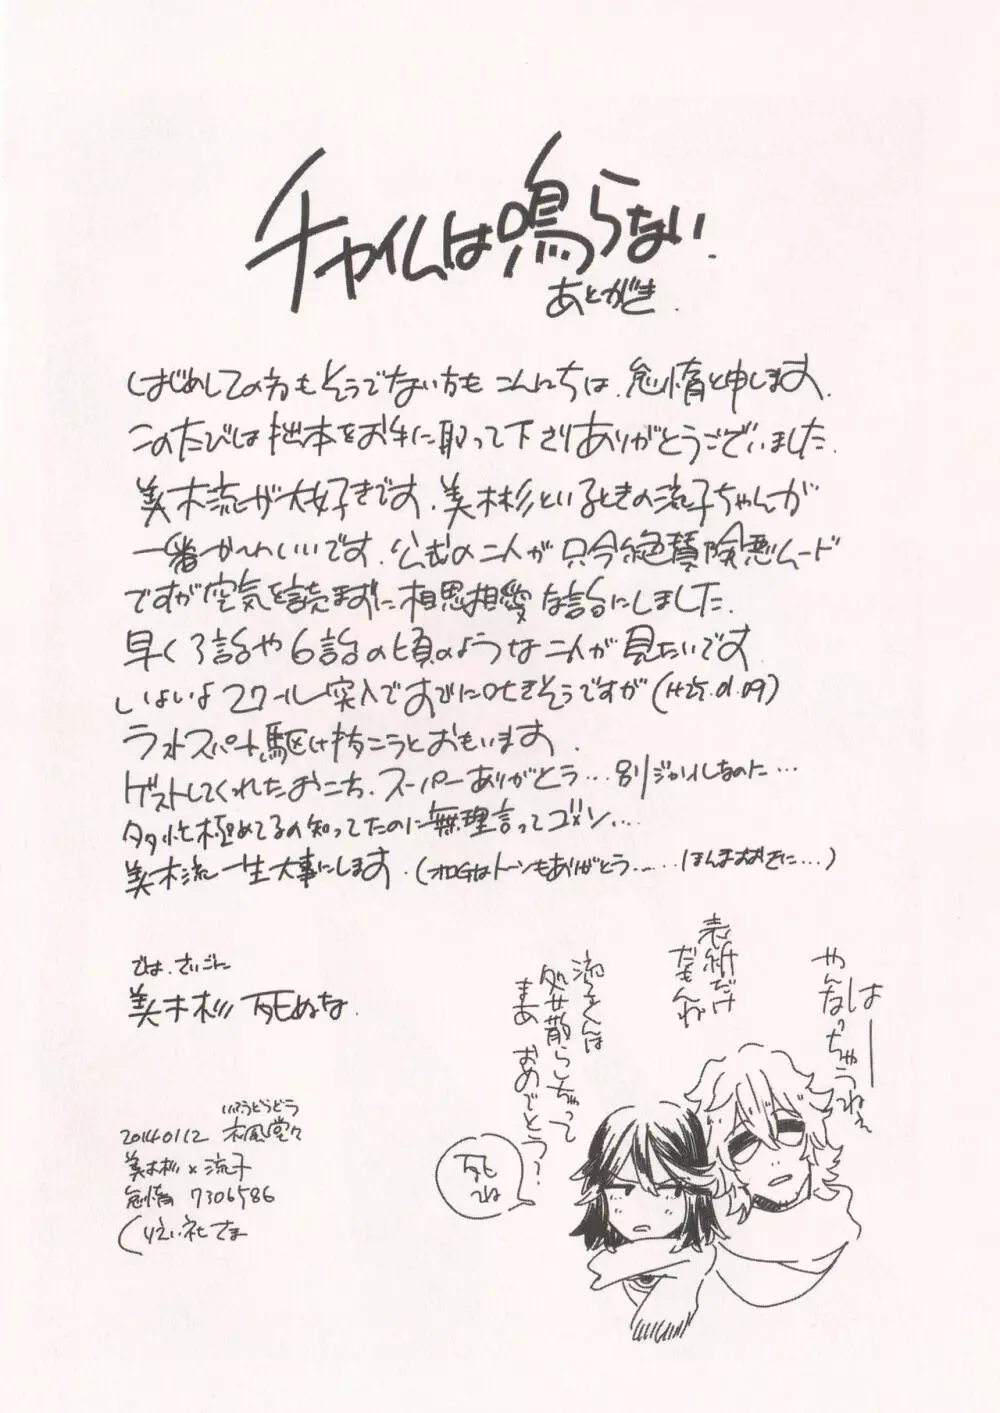 チャイムは鳴らない.
あとがき.
はじめての方もそうでない方もこんにちは.怠惰と申します.
このたびは拙本をお手に取って下さりありがとうございました.
美木流が大好きです.美木杉といるときの流子ちゃんが
一番かーわいいです.公式の二人が只今絶賛険悪ムード
ですが空気を読まずに相思相愛な話にしました.
早く3話や6話の頃のような二人が見たいです
いよいよ2クール突入ですでに吐きそうですが(H25.01.09)
ラストスパート駆け とおもいます.
ゲストしてくれたおこち、スーパーありがとう…別ジャンルなのに…
多忙極めてるの知ってたのに無理言ってゴメン…
美木流一生大事にします.( トーンもありがとう……ほんまおおきに…)
はー
やんなっちゃうねぇ
表紙だけ
だもんね
流子くんは
処女散らしちゃって
まあ おめでとう?
死ね
では.さいごに
美木杉死ぬな.
いふうどうどう
20140112 風堂々
美木杉×流子
怠惰 7306586
くりえい社さま